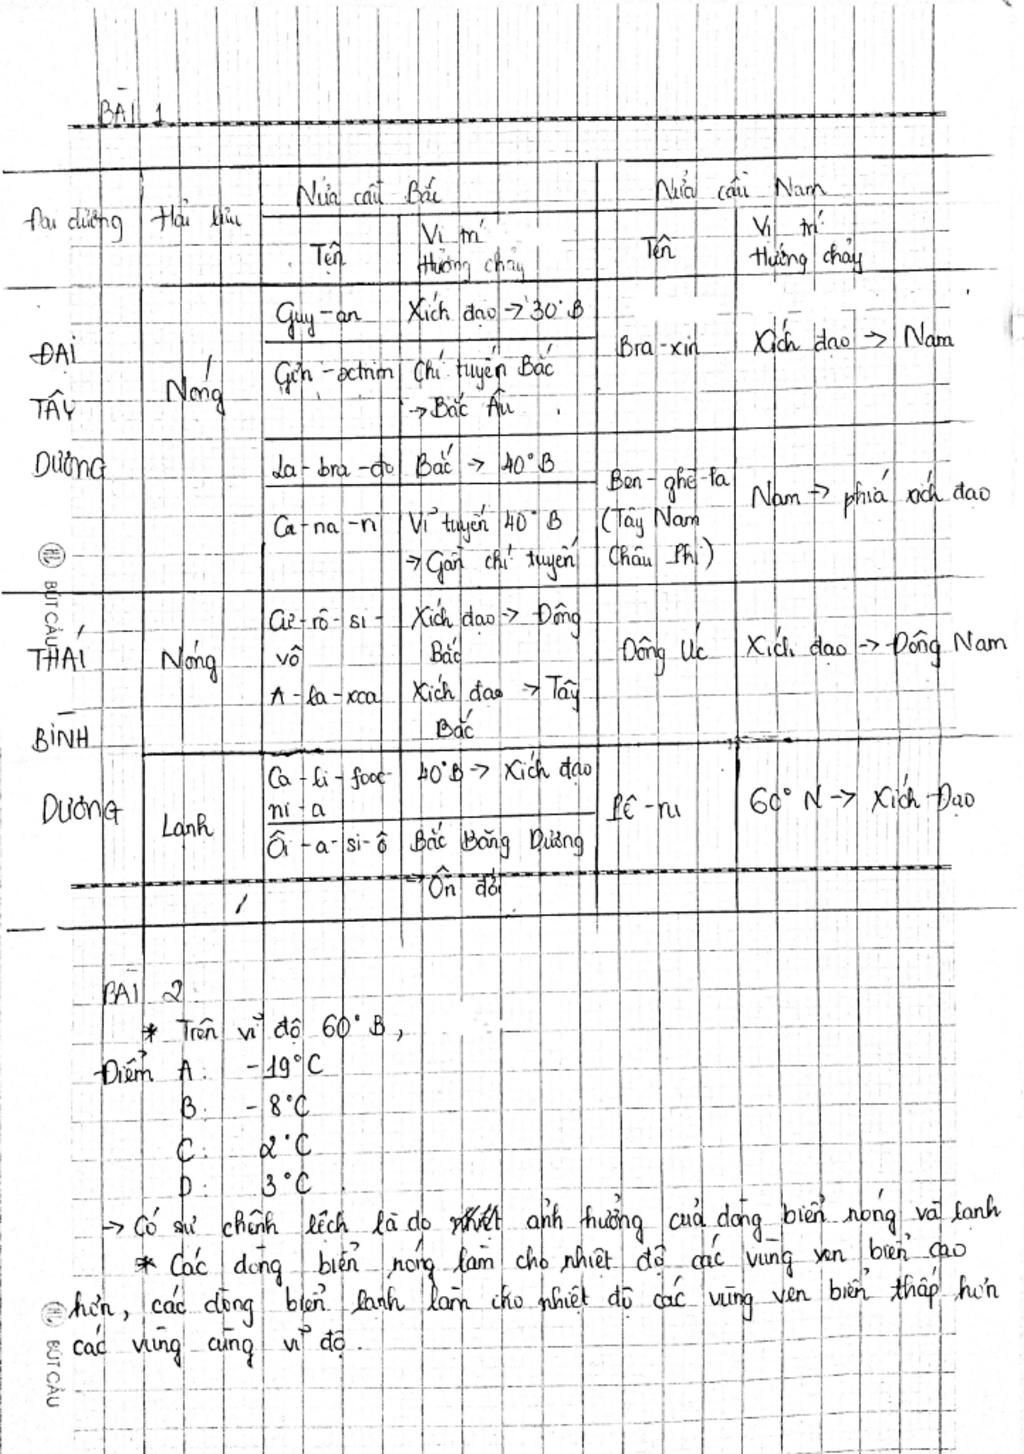 BÀI 1
Nửa cầu Bắc Nửa cầu Nam
Đại dương Hải lưu
Tên Vị trí Hướng chảy Tên Vị trí Hướng chảy
ĐẠI TÂY DƯƠNG
Nóng
Guy-an Xích đạo → 30°B
Gơn-xtrim Chí tuyến Bắc
→ Bắc Âu
Bra-xin Xích đạo → Nam
La-bra-đo Bắc → 40°B
Ca-na-ri Vĩ tuyến 40°B
→ Gần chí tuyến
Ben-ghê-la
(Tây Nam
Châu Phi)
Nam → phía xích đạo
THÁI BÌNH DƯƠNG
Nóng
Cư-rô-si-
vô
Xích đạo → Đông
Bắc
A-la-xca Xích đạo → Tây
Bắc
Đông Úc Xích đạo → Đông Nam
Lạnh
Ca-li-fooc-
ni-a
40°B → Xích đạo
Ôi-a-si-ô Bắc Băng Dương
→ Ôn đới
PÊ-ru 60°N → Xích Đạo
BÀI 2
* Trên vĩ độ 60°B,
Điểm A: -19°C
B: -8°C
C: 2°C
D: 3°C
→ Có sự chênh lệch là do ảnh hưởng của dòng biển nóng và lạnh
* Các dòng biển nóng làm cho nhiệt độ các vùng ven biển cao
hơn, các dòng biển lạnh làm cho nhiệt độ các vùng ven biển thấp hơn
các vùng cùng vĩ độ.
BÚT CÂU
BÚT CÂU